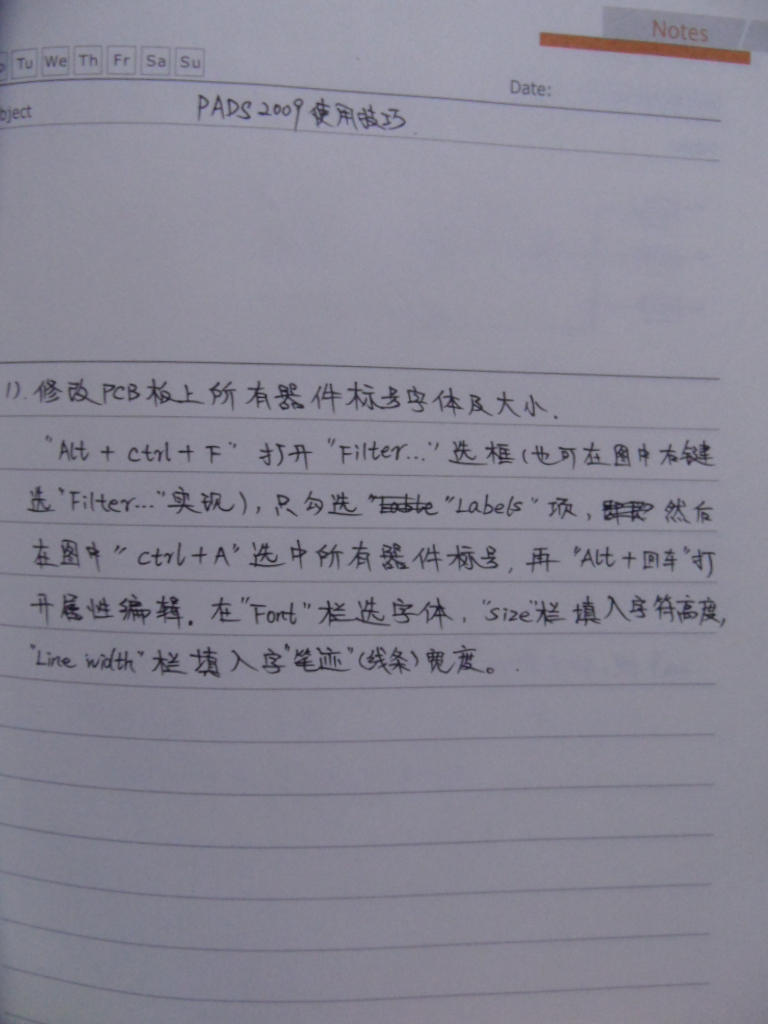 Notes
Tu We Th Fr Sa Su
Date:
bject PADS2009使用技巧
1).修改PCB板上所有器件标号字体及大小.
"Alt + ctrl + F" 打开 "Filter..." 选框(也可在图中右键
选"Filter..."实现), 只勾选 "Labels" 项, 然后
在图中 "ctrl+A" 选中所有器件标号, 再 "Alt+回车"打
开属性编辑. 在"Font"栏选字体, "size"栏填入字符高度,
"Line width" 栏填入字"笔迹"(线条)宽度。